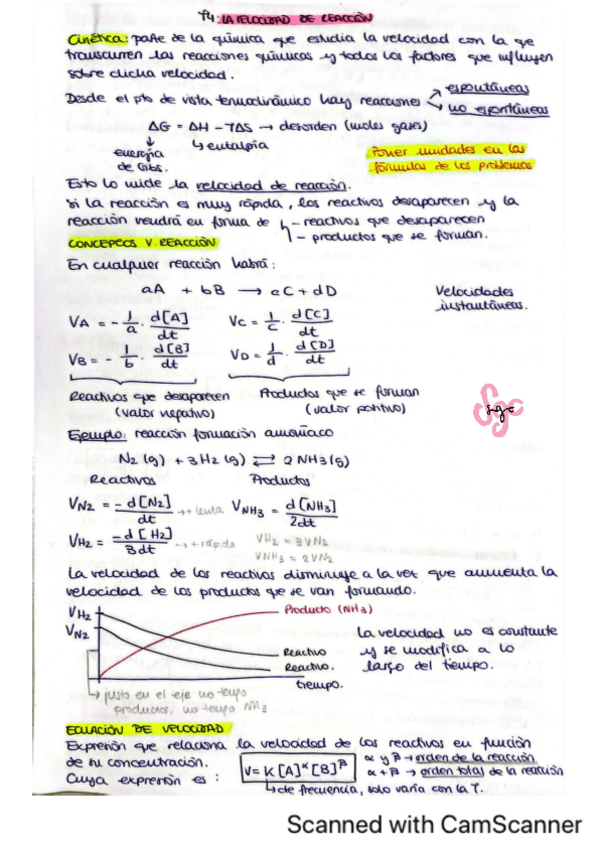 T4: LA VELOCIDAD DE REACCIÓN
Cinética: parte de la química que estudia la velocidad con la que
transcurren las reacciones químicas y todos los factores que influyen
sobre dicha velocidad.
Desde el pto de vista termodinámico hay reacciones
espontáneas
no espontáneas
ΔG = ΔH - TΔS → desorden (moles gases)
energía de Gibs.
entalpía
Poner unidades en las
fórmulas de los problemas
Esto lo mide la velocidad de reacción.
Si la reacción es muy rápida, los reactivos desaparecen y la
reacción vendrá en forma de
- reactivos que desaparecen
- productos que se forman.
CONCEPTOS V. REACCIÓN
En cualquier reacción habrá:
aA + bB → cC + dD
Velocidades
instantáneas.
VA = - 1/a · d[A]/dt VC = 1/c · d[C]/dt
VB = - 1/b · d[B]/dt VD = 1/d · d[D]/dt
Reactivos que desaparecen Productos que se forman
(valor negativo) (valor positivo)
Sgc
Ejemplo: reacción formación amoníaco
N2 (g) + 3H2 (g) ⇄ 2NH3 (g)
Reactivos Productos
VN2 = -d[N2]/dt → + lenta VNH3 = d[NH3]/2dt
VH2 = -d[H2]/3dt → + rápida VH2 = 3VN2
VNH3 = 2VN2
La velocidad de los reactivos disminuye a la vez que aumenta la
velocidad de los productos que se van formando.
VH2
VN2
Producto (NH3)
Reactivo
Reactivo.
tiempo.
La velocidad no es constante
y se modifica a lo
largo del tiempo.
justo en el eje no tengo
productos, no tengo NH3
ECUACIÓN DE VELOCIDAD
Expresión que relaciona la velocidad de los reactivos en función
de su concentración.
Cuya expresión es:
V = K[A]^α[B]^β
α y β → orden de la reacción
α + β → orden total de la reacción
cte frecuencia, solo varía con la T.
Scanned with CamScanner